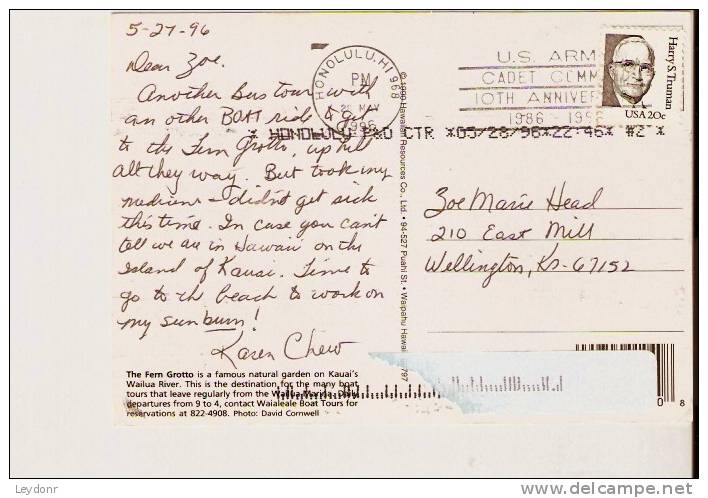 5-27-96
Dear Zoe.
Another Bus tour with
an other BOAT ride to get
to the Fern Grotto, up hill
all they way. But took my
medicine - didn't get sick
this time. In case you can't
tell we are in Hawaii on the
Island of Kauai. Time to
go to the beach to work on
my sunburn!
Karen Chew
The Fern Grotto is a famous natural garden on Kauai's
Wailua River. This is the destination for the many boat
tours that leave regularly from the Wailua Marina. Daily
departures from 9 to 4, contact Waialeale Boat Tours for
reservations at 822-4908. Photo: David Cornwell
HONOLULU, HI 968
PM
28 MAY
1996
U.S. ARM
CADET COMM
10TH ANNIVER
1986 - 1996
Harry S. Truman
USA 20c
* HONOLULU P&D CTR *05/28/96*22:46* #2 *
© 1990 Hawaiian Resources Co., Ltd. • 94-527 Puahi St. • Waipahu Hawaii 96797
Zoe Marie Head
210 East Mill
Wellington, Ks- 67152
0 8
Leydonr
www.delcampe.net